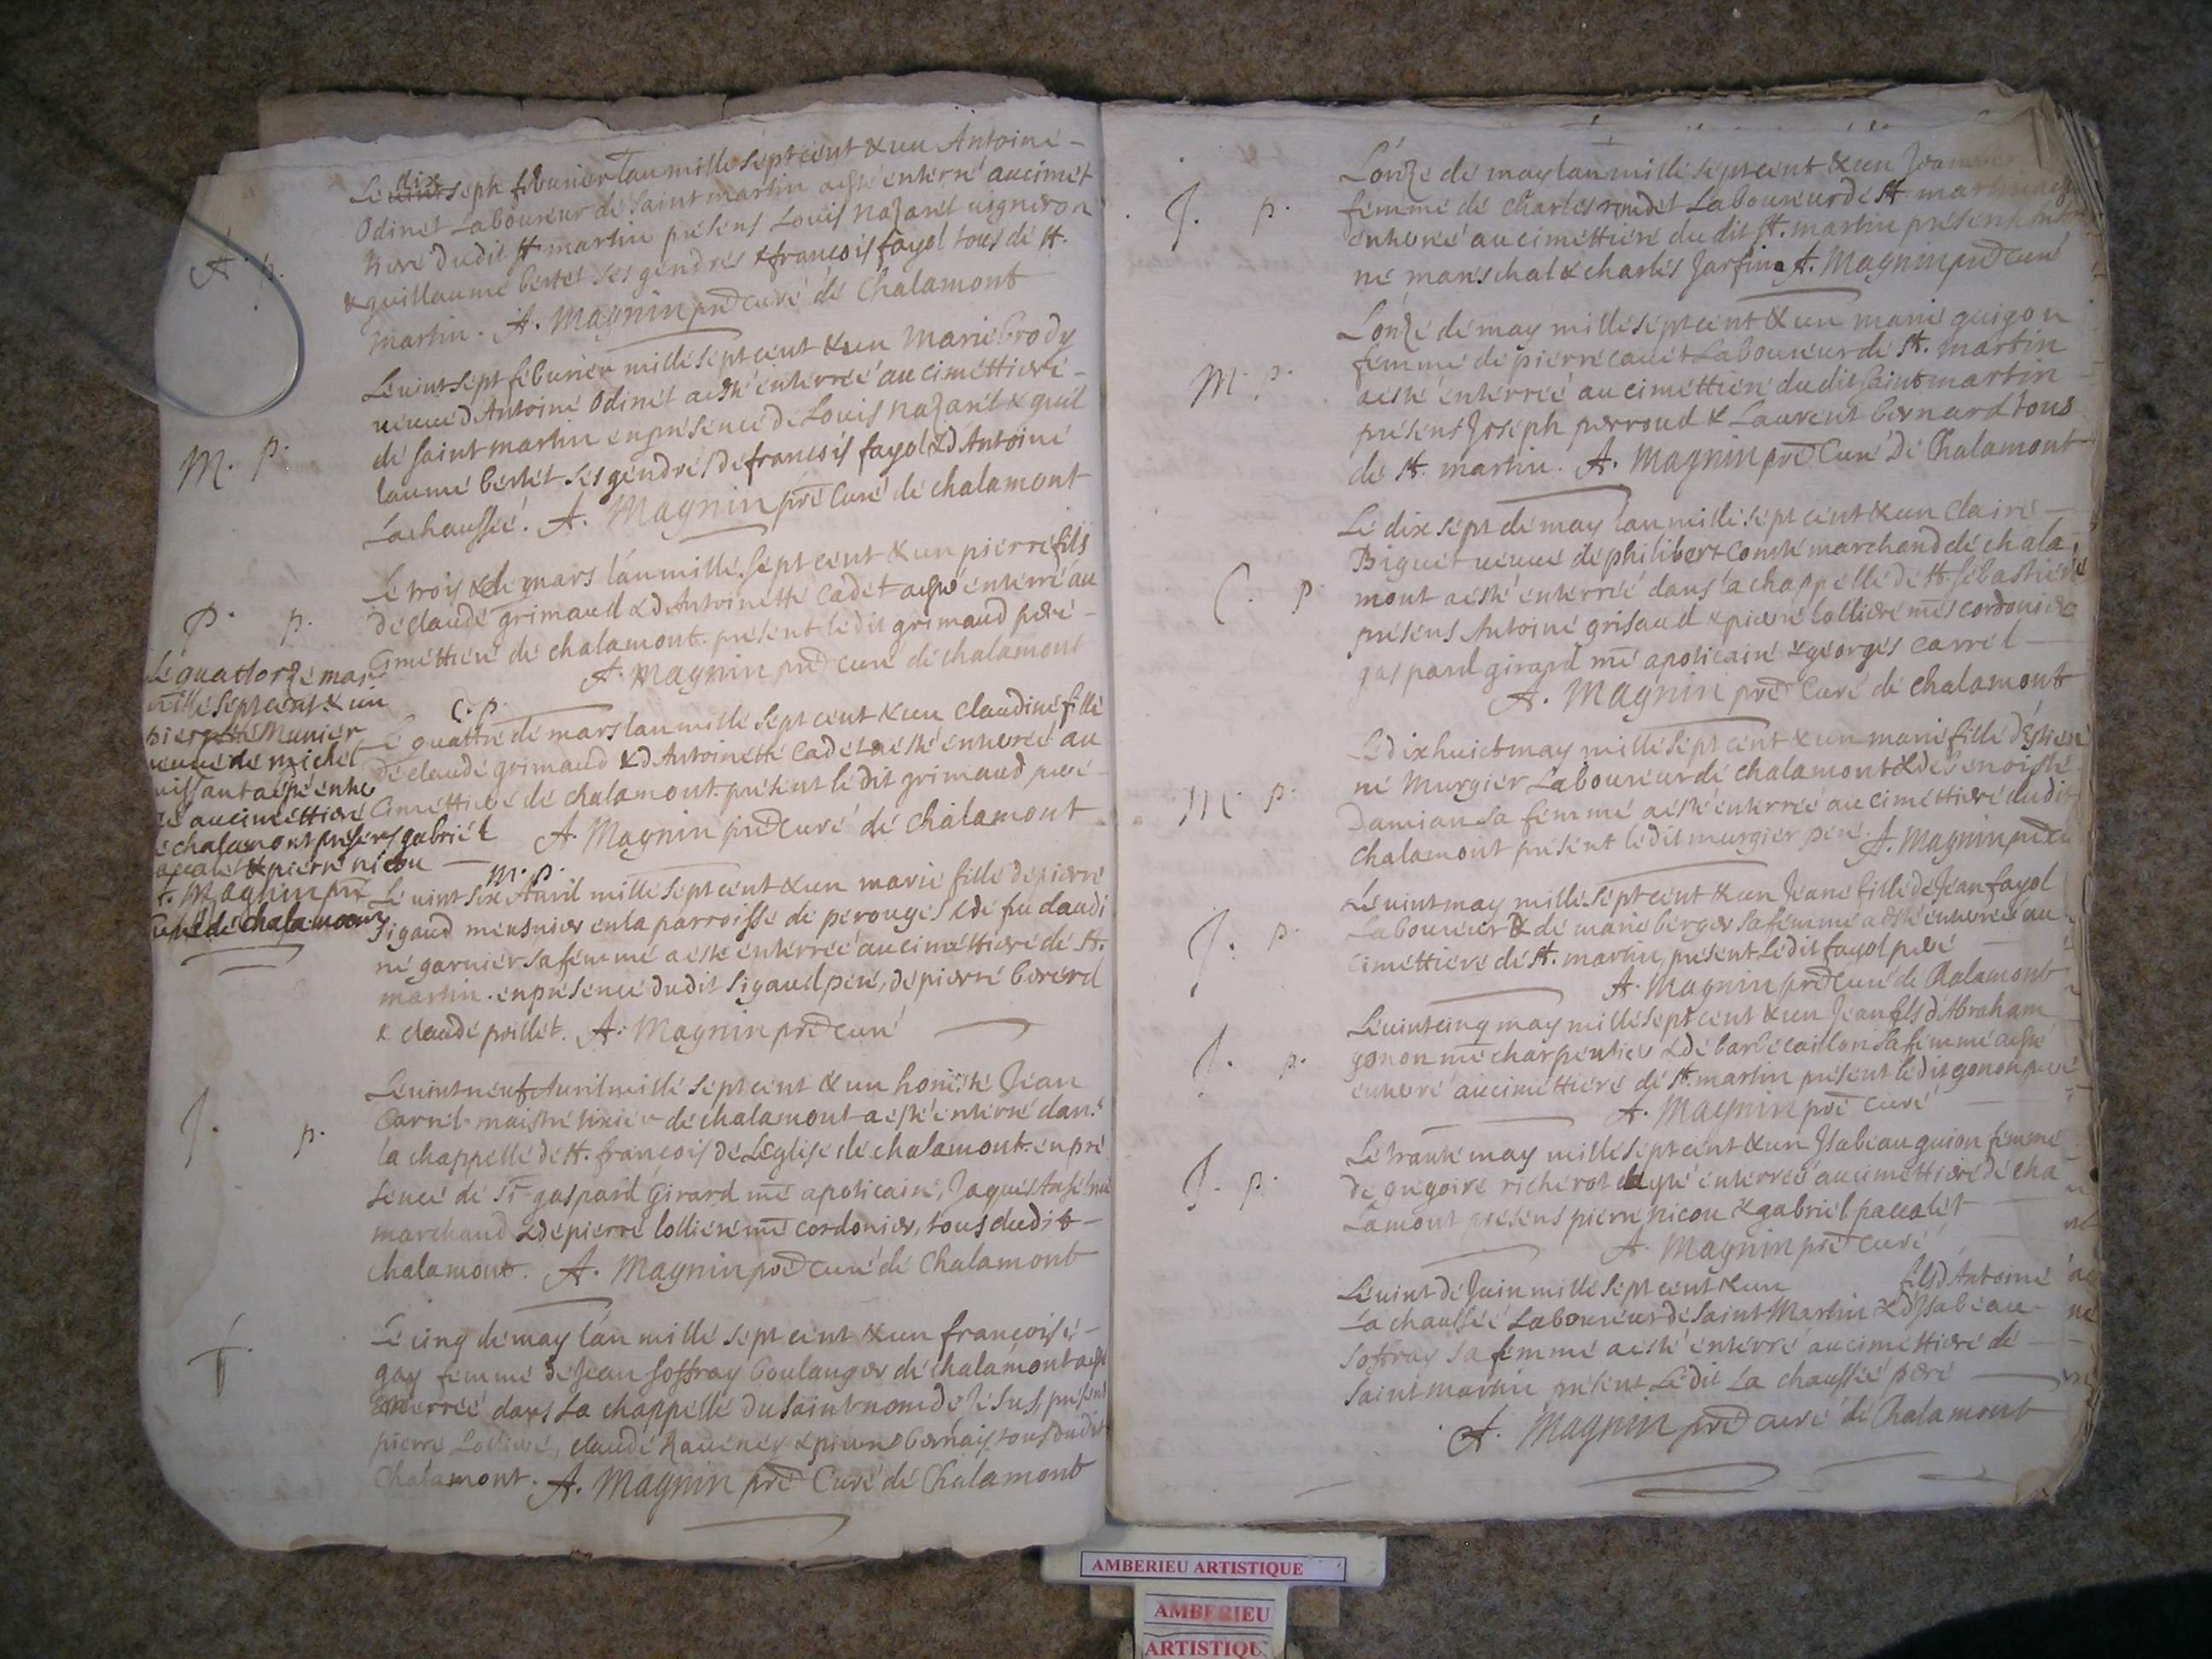 Le dix seph feburier l'an mille sept cent & un Antoine
Odinet Laboureur de saint martin a esté enterré au cimet
tiere dudit st martin présens Louis nazaret uigneron
& guillaume bertet ses gendres & francois fayol tous de st.
martin. A. Magnin pre curé de Chalamont
A. p.
Le uint sept feburier mille sept cent & un Marie brody
ueuue d'Antoine Odinet a esté enterrée au cimettiere
de saint martin en presence de Louis nazaret & guil
laume bertet ses gendres de francois fayol & d'Antoine
Lachaussée. A. Magnin pre Curé de chalamont
M. p.
Le trois de mars l'an mille sept cent & un pierre fils
de claude grimaud & d'Antoinette Cadet a esté enterré au
Cimettiere de chalamont. present ledit grimaud pere
A. Magnin pre Curé de chalamont
P. p.
Le quattorze mar
mille sept cent & un
Munier
ueuue de michel
a esté ente
ré au cimettiere
chalamont presens gabriel
& pierre nicou
A. Magnin pre
Curé de chalamont
C. p.
Le quattre de mars l'an mille sept cent & un claudine fille
de claude grimaud & d'Antoinette Cadet a esté enterée au
Cimettiere de chalamont. present ledit grimaud pere
A. Magnin pre Curé de chalamont
M. p.
Le uint six Auril mille sept cent & un marie fille de pierre
Sigaud meusnier en la parroisse de perouges & de fu claudi
ne garnier sa femme a esté enterrée au cimettiere de st.
martin. en presence dudit sigaud pere, de pierre bererd
& claude poillet. A. Magnin pre curé
Le uint neuf Auril mille sept cent & un honeste Jean
Carrel maistre tixier de chalamont a esté enterré dans
la chappelle de st. francois de L'Eglise de chalamont. en pre
sence de Sr gaspard Girard me apoticaire, Jaques Anselme
marchand & de pierre lolliere me cordonier, tous dudit
chalamont. A. Magnin pre curé de Chalamont
J. p.
Le cinq de may l'an mille sept cent & un francoise
gay femme de Jean soffray boulanger de chalamont a esté
enterrée dans la chappelle du saint nom de Jesus, presens
pierre Lolliere, claude & pierre bernais, tous dudit
Chalamont. A. Magnin pre Curé de Chalamont
f
L'onze de may l'an mille sept cent & un Jeanne
femme de charles rondet Laboureur de st. martin a esté
enterée au cimettiere du dit st. martin presens
ne mareschal & charles Jarfin. A. Magnin pre curé
J. p.
L'onze de may mille sept cent & un marie guigon
femme de pierre cadet Laboureur de st. martin
a esté enterrée au cimettiere du dit saint martin
présens Joseph perroud & Laurent bernard tous
de st. martin. A. Magnin pre Curé de Chalamont
M. p.
Le dix sept de may l'an mille sept cent & un Claire
Biguet ueuue de philibert Comte marchand de chala
mont a esté enterrée dans la chappelle de st. sebastien
présens Antoine grisaud & pierre lolliere mes cordoniers
gaspard girard me apoticaire & georges Carrel
A. Magnin pre Curé de chalamont
C. p.
Le dix huict may mille sept cent & un marie fille d'Estien
ne Murgier Laboureur de chalamont & de benoiste
Damian sa femme a esté enterrée au cimettiere dudit
chalamont présent ledit murgier pere. A. Magnin pre
M. p.
Le uint may mille sept cent & un Jeane fille de Jean fayol
Laboureur & de marie berger sa femme a esté enterée au
cimettiere de st. martin, présent ledit fayol pere
A. Magnin pre Curé de Chalamont
J. p.
Le uint cinq may mille sept cent & un Jean fils d'Abraham
gonon me charpentier & de barbe caillon sa femme a esté
enterré au cimettiere de st. martin présent ledit gonon pere
A. Magnin pre Curé
J. p.
Le trante may mille sept cent & un Jsabeau guion femme
de gregoire richerot a esté enterrée au cimettiere de cha
lamont présens pierre nicou & gabriel paccalet
A. Magnin pre Curé
J. p.
Le uint de Juin mille sept cent & un fils d'Antoine
La chaussée Laboureur de Saint Martin & d'Jsabeau
soffray sa femme a esté enterré au cimettiere de
saint martin présent Ledit La chaussée pere
A. Magnin pre curé de Chalamont
AMBERIEU ARTISTIQUE
AMBERIEU
ARTISTIQU